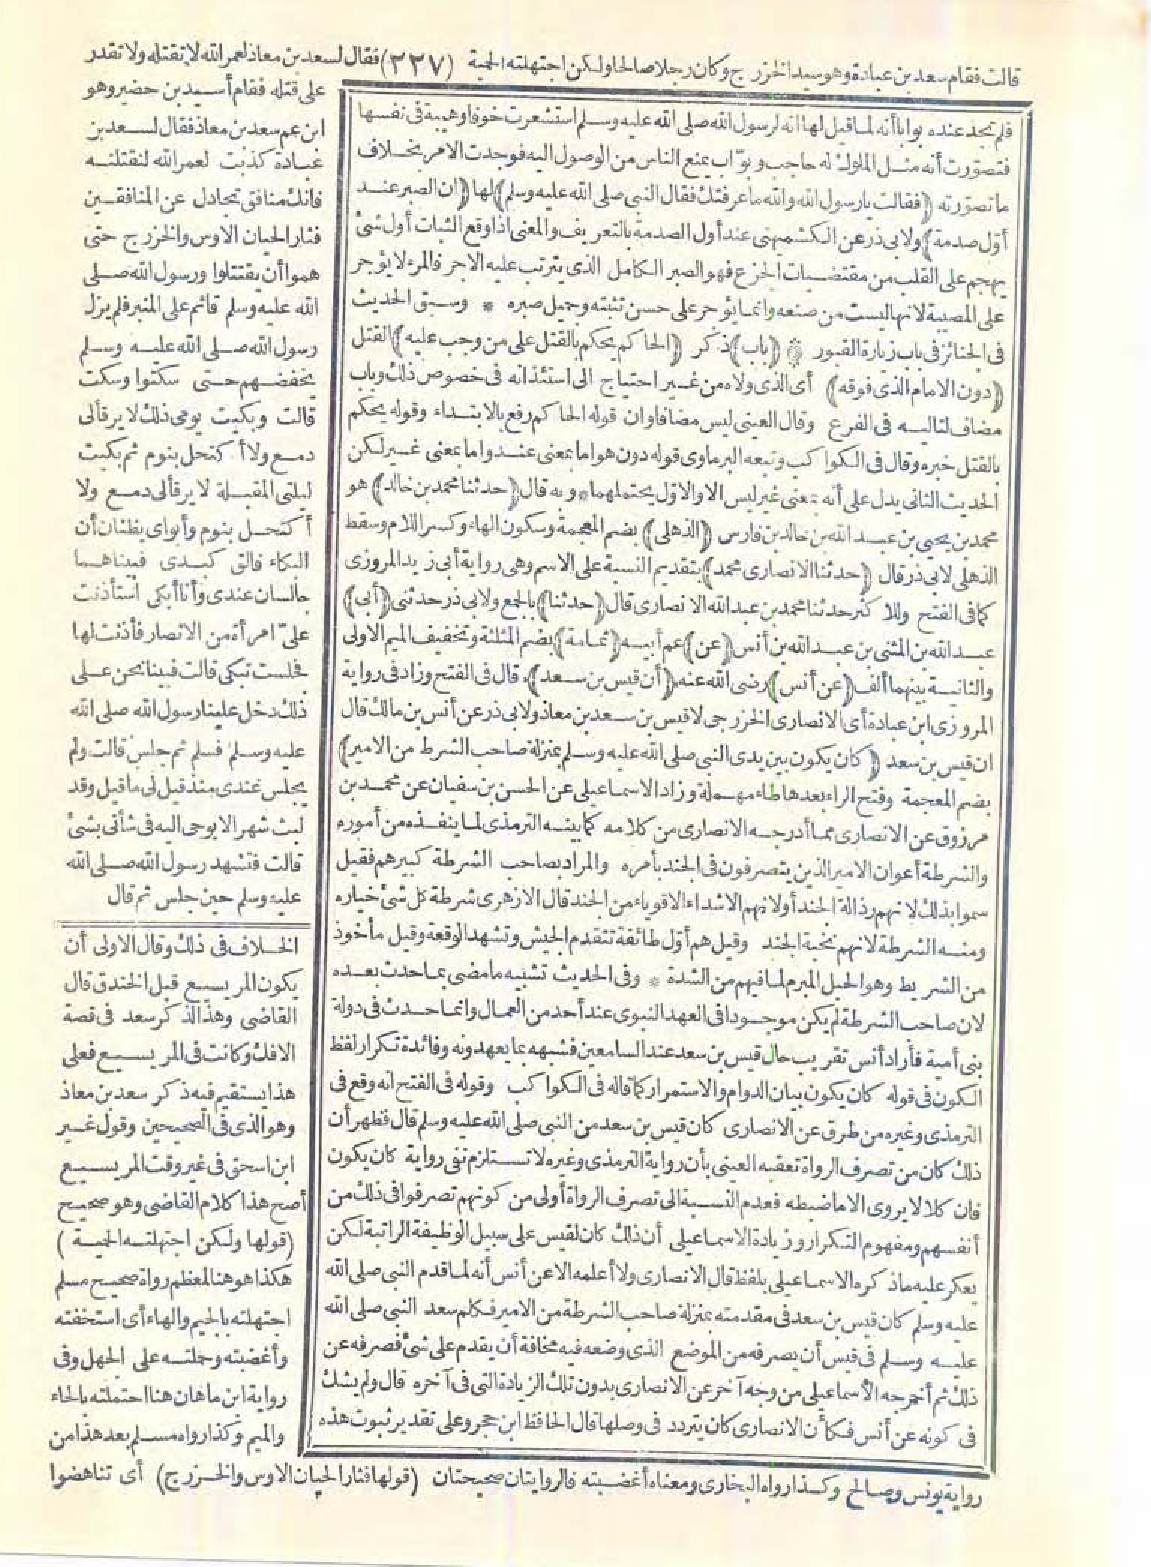 قالت فقام سعد بن عبادة وهو سيد الخزرج وكان رجلا صالحا ولكن اجتهلته الحمية (٢٢٧) فقال لسعد بن معاذ لعمر الله لا تقتله ولا تقدر
على قتله فقام أسيد بن حضير وهو
ابن عم سعد بن معاذ فقال لسعد بن
عبادة كذبت لعمر الله لنقتلنه
فانك منافق تجادل عن المنافقين
فثار الحيان الاوس والخزرج حتى
هموا أن يقتتلوا ورسول الله صلى
الله عليه وسلم قائم على المنبر فلم يزل
رسول الله صلى الله عليه وسلم
يخفضهم حتى سكتوا وسكت
قالت وبكيت يومى ذلك لا يرقأ لى
دمع ولا أكتحل بنوم ثم بكيت
ليلتى المقبلة لا يرقأ لى دمع ولا
أكتحل بنوم وأبواى يظنان أن
البكاء فالق كبدى فبيناهما
جالسان عندى وأنا أبكى استأذنت
على امرأة من الانصار فأذنت لها
فجلست تبكى قالت فبينا نحن على
ذلك دخل علينا رسول الله صلى الله
عليه وسلم فسلم ثم جلس قالت ولم
يجلس عندى منذ قيل لى ما قيل وقد
لبث شهرا لا يوحى اليه فى شأنى بشئ
قالت فتشهد رسول الله صلى الله
عليه وسلم حين جلس ثم قال
فلم تجد عنده بوابا أنه لما قيل لها انه لرسول الله صلى الله عليه وسلم استشعرت خوفا وهيبة فى نفسها
فتصورت أنه مثل الملوك له حاجب وبواب يمنع الناس من الوصول اليه فوجدت الامر بخلاف
ما تصورته (فقالت يا رسول الله والله ما عرفتك فقال النبى صلى الله عليه وسلم) لها (ان الصبر عند
أول صدمة) ولابى ذر عن الكشميهنى عند أول الصدمة بالتعريف والمعنى اذا وقع الثبات أول شئ
يهجم على القلب من مقتضيات الجزع فهو الصبر الكامل الذى يترتب عليه الاجر فالمرء لا يؤجر
على المصيبة لانها ليست من صنعه وانما يؤجر على حسن تثبته وجميل صبره * وسبق الحديث
فى الجنائز فى باب زيارة القبور * (باب) ذكر (الحاكم يحكم بالقتل على من وجب عليه) القتل
(دون الامام الذى فوقه) أى الذى ولاه من غير احتياج الى استئذانه فى خصوص ذلك وباب
مضاف لتاليه فى الفرع وقال العينى ليس مضافا وان قوله الحاكم رفع بالابتداء وقوله يحكم
بالقتل خبره وقال فى الكواكب وتبعه البرماوى قوله دون هو اما بمعنى عند واما بمعنى غير لكن
الحديث الثانى يدل على أنه بمعنى غير ليس الا والاول يحتملهما * وبه قال (حدثنا محمد بن خالد) هو
محمد بن يحيى بن عبد الله بن خالد بن فارس (الذهلى) بضم المعجمة وسكون الهاء وكسر اللام وسقط
الذهلى لابى ذر قال (حدثنا الانصارى محمد) بتقديم النسبة على الاسم وهى رواية أبى زيد المروزى
كما فى الفتح وللاكثر حدثنا محمد بن عبد الله الانصارى قال (حدثنا) بالجمع ولابى ذر حدثنى (أبى)
عبد الله بن المثنى بن عبد الله بن أنس (عن) عم أبيه (ثمامة) بضم المثلثة وتخفيف الميم الاولى
والثانية بينهما ألف (عن أنس) رضى الله عنه (أن قيس بن سعد) قال فى الفتح وزاد فى رواية
المروزى ابن عبادة أى الانصارى الخزرجى لا قيس بن سعد بن معاذ ولابى ذر عن أنس بن مالك قال
ان قيس بن سعد (كان يكون بين يدى النبى صلى الله عليه وسلم بمنزلة صاحب الشرط من الامير)
بضم المعجمة وفتح الراء بعدها طاء مهملة وزاد الاسماعيلى عن الحسن بن سفيان عن محمد بن
مرزوق عن الانصارى مما أدرجه الانصارى من كلامه كما بينه الترمذى لما ينفذه من أموره
والشرطة أعوان الامير الذين يتصرفون فى الجند بأمره والمراد بصاحب الشرطة كبيرهم فقيل
سموا بذلك لانهم رذالة الجند أو لانهم الاشداء الاقوياء من الجند قال الازهرى شرطة كل شئ خياره
ومنه الشرطة لانهم نخبة الجند وقيل هم أول طائفة تتقدم الجيش وتشهد الوقعة وقيل مأخوذ
من الشريط وهو الحبل المبرم لما فيهم من الشدة * وفى الحديث تشبيه ما مضى بما حدث بعده
لان صاحب الشرطة لم يكن موجودا فى العهد النبوى عند أحد من العمال وانما حدث فى دولة
بنى أمية فأراد أنس تقريب حال قيس بن سعد عند السامعين فشبهه بما يعهدونه وفائدة تكرار لفظ
الكون فى قوله كان يكون بيان الدوام والاستمرار كما قاله فى الكواكب وقوله فى الفتح انه وقع فى
الترمذى وغيره من طرق عن الانصارى كان قيس بن سعد من النبى صلى الله عليه وسلم قال فظهر أن
ذلك كان من تصرف الرواة تعقبه العينى بأن رواية الترمذى وغيره لا تستلزم نفى رواية كان يكون
فان كلا لا يروى الا ما ضبطه فعدم النسبة الى تصرف الرواة أولى من كونهم تصرفوا فى ذلك من
أنفسهم ومفهوم التكرار وزيادة الاسماعيلى أن ذلك كان لقيس على سبيل الوظيفة الراتبة لكن
يعكر عليه ما ذكره الاسماعيلى بلفظ قال الانصارى ولا أعلمه الا عن أنس أنه لما قدم النبى صلى الله
عليه وسلم كان قيس بن سعد فى مقدمته بمنزلة صاحب الشرطة من الامير فكلم سعد النبى صلى الله
عليه وسلم فى قيس أن يصرفه من الموضع الذى وضعه فيه مخافة أن يقدم على شئ فصرفه عن
ذلك ثم أخرجه الاسماعيلى من وجه آخر عن الانصارى بدون تلك الزيادة التى فى آخره قال ولم يشك
فى كونه عن أنس فكأن الانصارى كان يتردد فى وصلها قال الحافظ ابن حجر وعلى تقدير ثبوت هذه
الخلاف فى ذلك وقال الاولى أن
يكون المريسيع قبل الخندق قال
القاضى وهذا لذكر سعد فى قصة
الافك وكانت فى المريسيع فعلى
هذا يستقيم فيه ذكر سعد بن معاذ
وهو الذى فى الصحيحين وقول غير
ابن اسحق فى غير وقت المريسيع
أصح هذا كلام القاضى وهو صحيح
(قولها ولكن اجتهلته الحمية)
هكذا هو هنا لمعظم رواة صحيح مسلم
اجتهلته بالجيم والهاء أى استخفته
وأغضبته وحملته على الجهل وفى
رواية ابن ماهان هنا احتملته بالحاء
والميم وكذا رواه مسلم بعد هذا من
رواية يونس وصالح وكذا رواه البخارى ومعناه أغضبته فالروايتان صحيحتان (قولها فثار الحيان الاوس والخزرج) أى تناهضوا